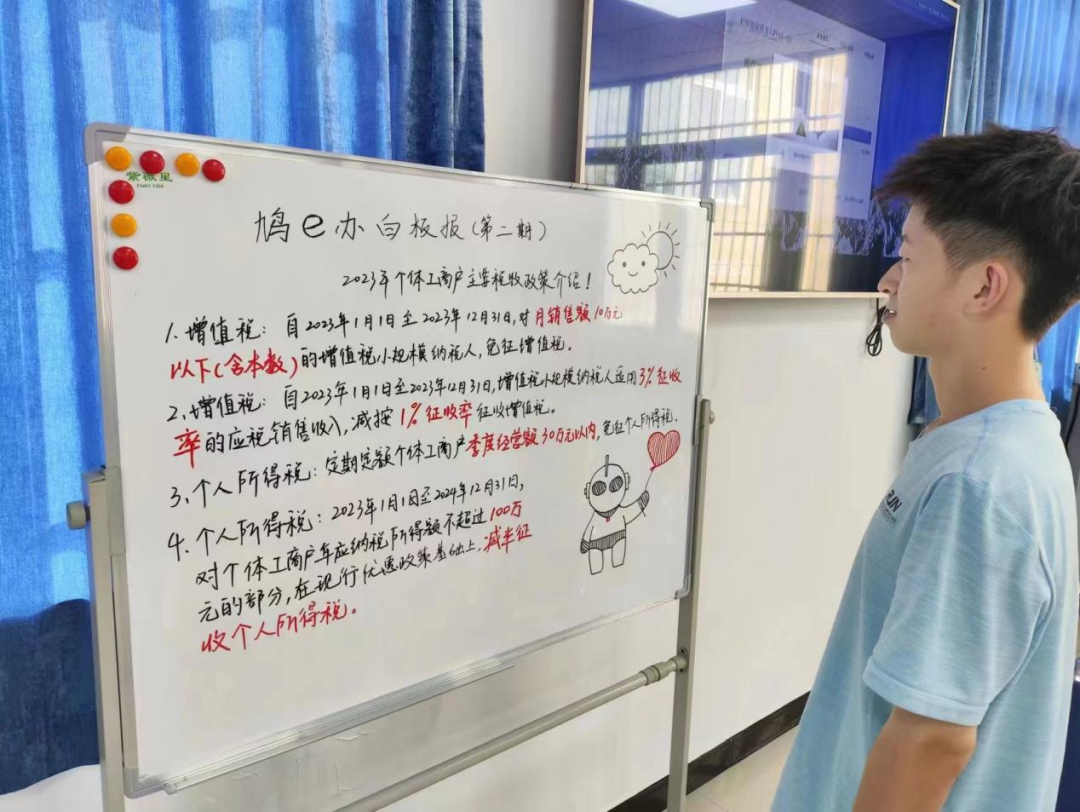 紫薇星
鸠e办白板报(第二期)
2023年个体工商户主要税收政策介绍!
1、增值税：自2023年1月1日至2023年12月31日,对月销售额10万元
以下(含本数)的增值税小规模纳税人,免征增值税。
2、增值税：自2023年1月1日至2023年12月31日,增值税小规模纳税人适用3%征收
率的应税销售收入,减按1%征收率征收增值税。
3、个人所得税：定期定额个体工商户季度经营额30万元以内,免征个人所得税.
4、个人所得税：2023年1月1日至2024年12月31日,
对个体工商户年应纳税所得额不超过100万
元的部分,在现行优惠政策基础上,减半征
收个人所得税。